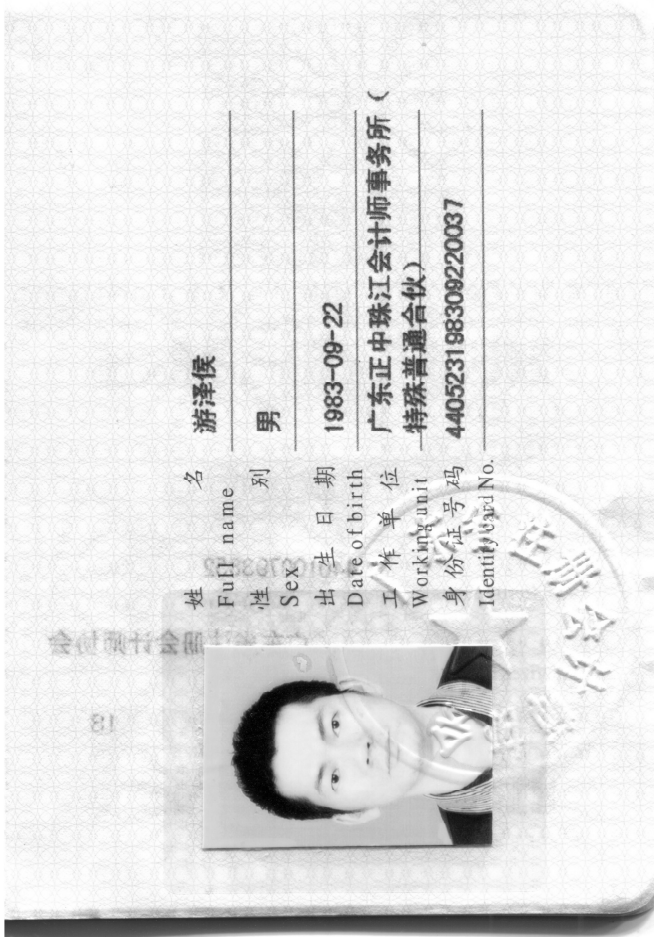 姓 名 游泽侯
Full name
性 别 男
Sex
出 生 日 期 1983-09-22
Date of birth
工 作 单 位 广东正中珠江会计师事务所(
Working unit 特殊普通合伙)
身 份 证 号 码 440523198309220037
Identity card No.